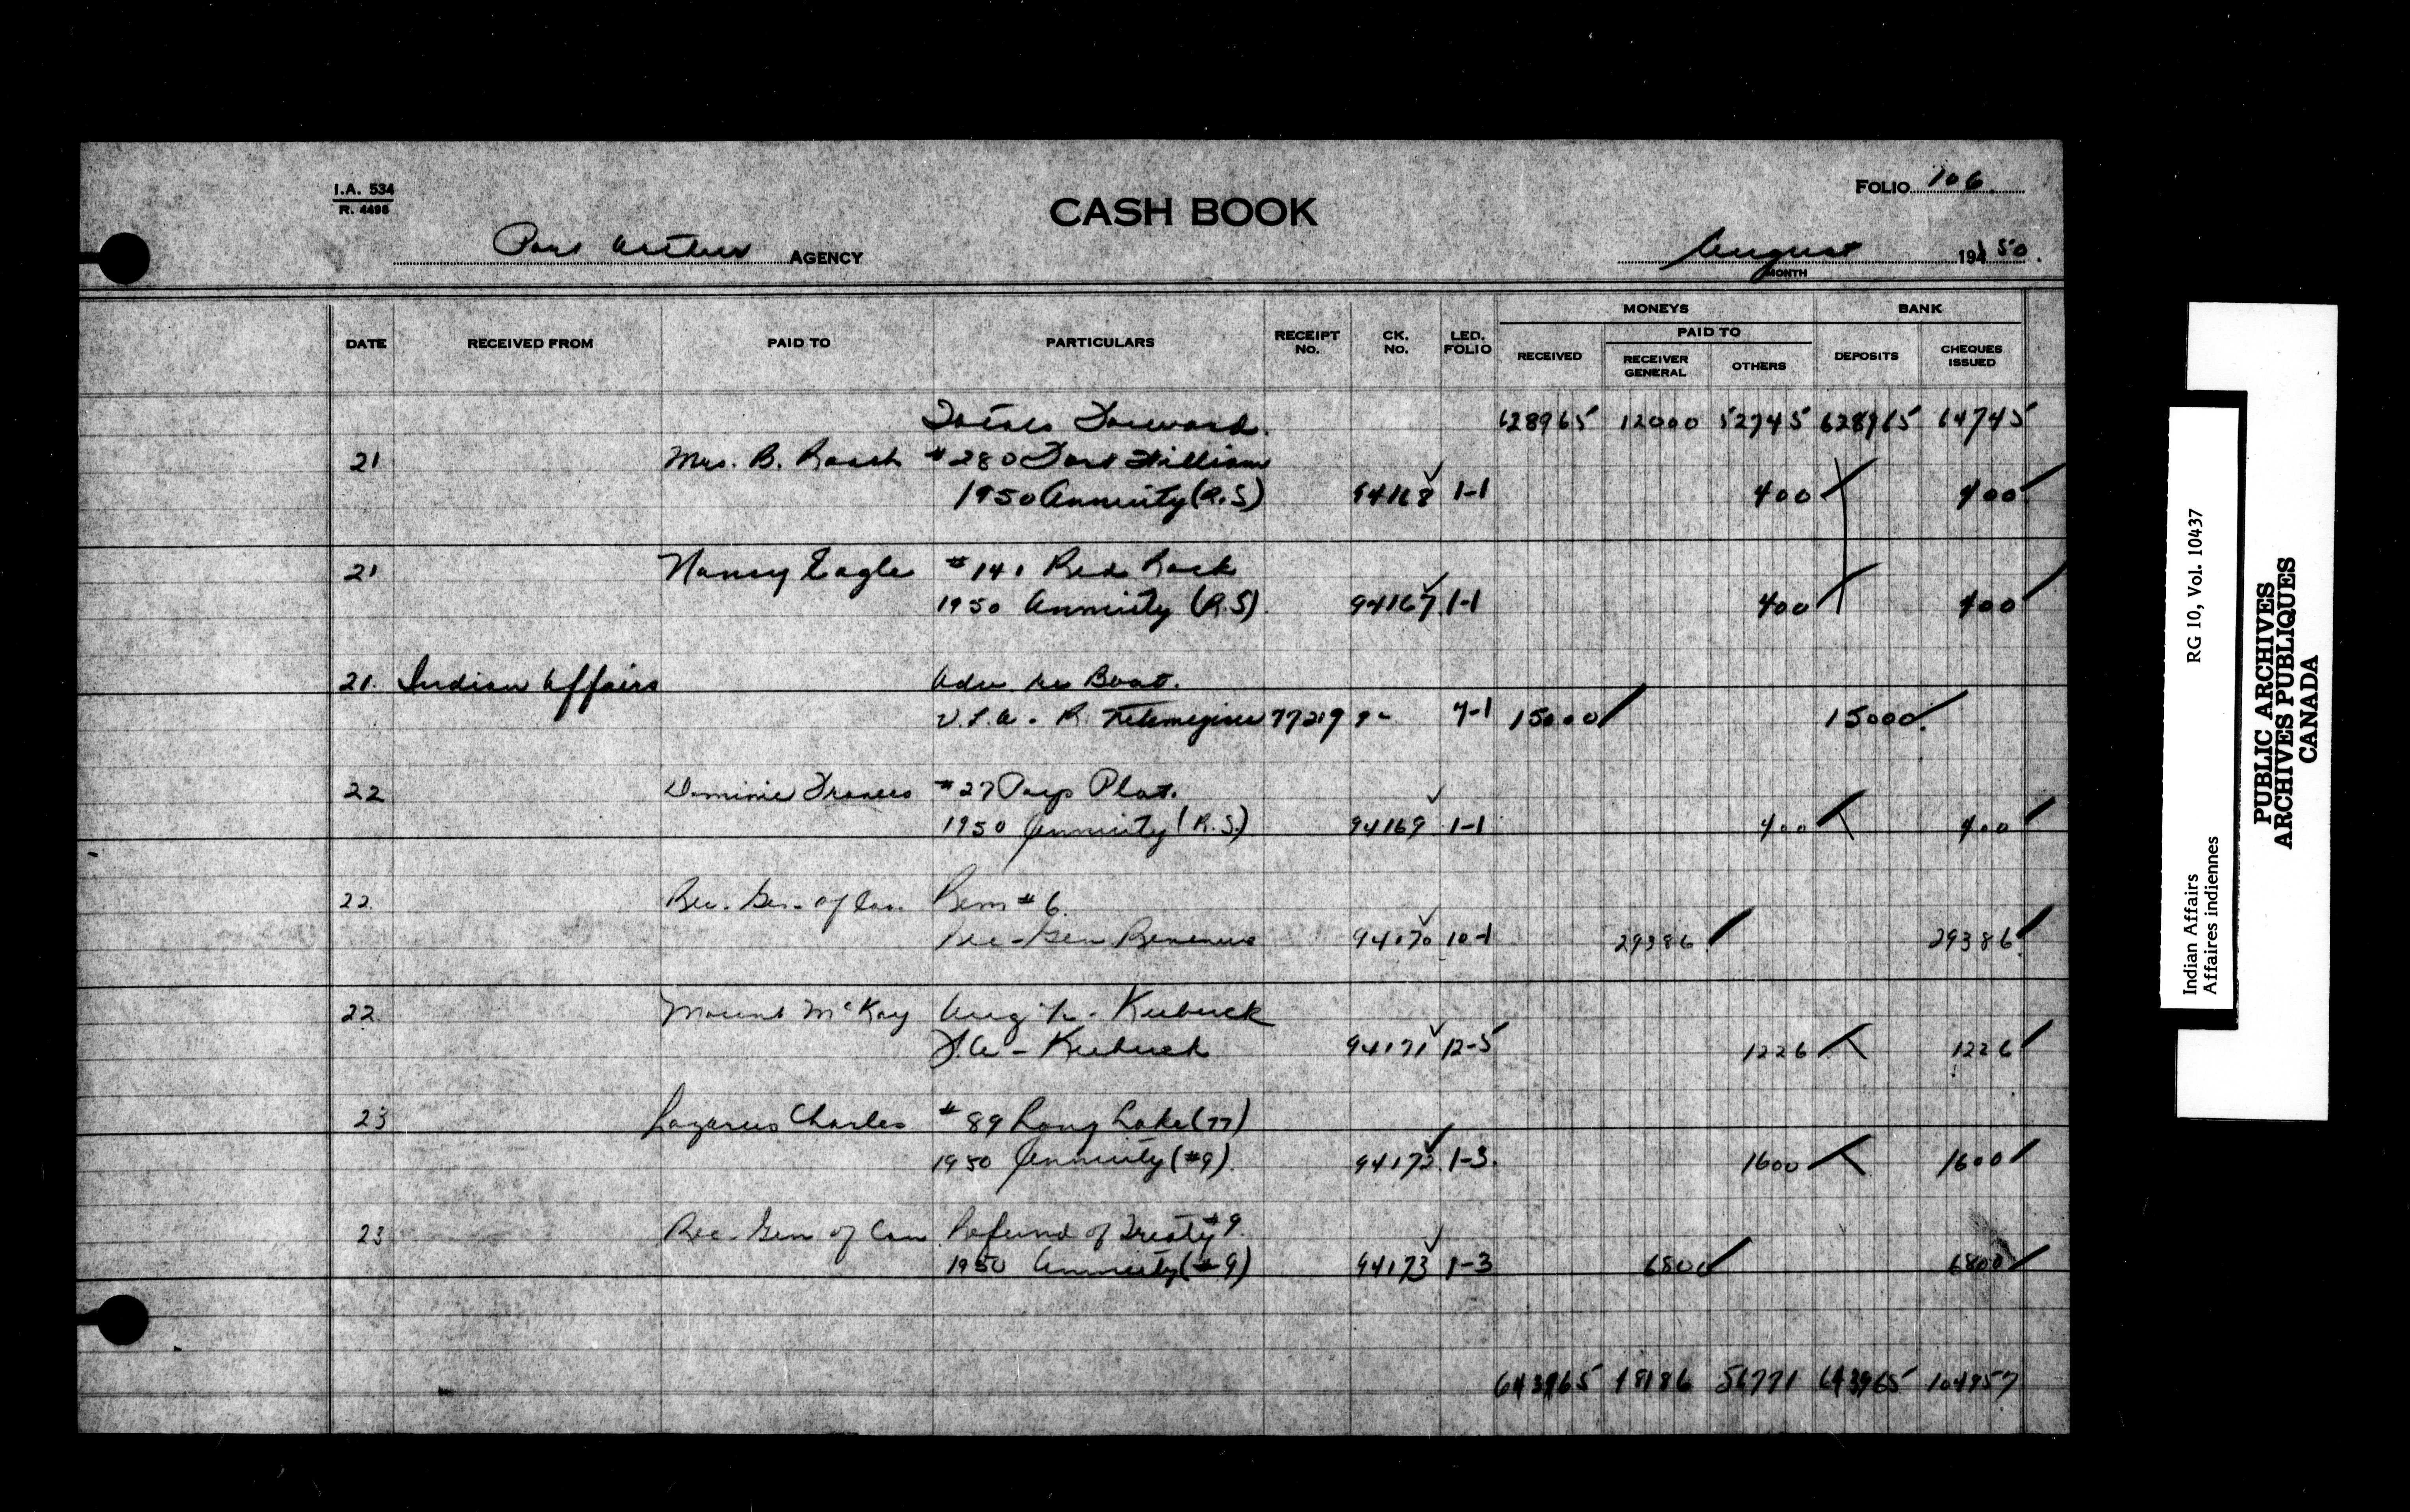 I.A. 534
R. 4495
CASH BOOK
FOLIO 106
Port Arthur AGENCY
August 1950.
MONTH
MONEYS BANK
PAID TO
DATE RECEIVED FROM PAID TO PARTICULARS RECEIPT No. CK. No. LED. FOLIO RECEIVED RECEIVER GENERAL OTHERS DEPOSITS CHEQUES ISSUED
Totals Forward. 628965 12000 52745 628965 64745
21 Mrs. B. #280 Fort William
1950 Annuity (R.S) 94168 1-1 400 400
21 Nancy Eagle #141 Red Rock
1950 Annuity (R.S) 94167 1-1 400 400
21. Indian Affairs Adv re Boat.
R. 77219 7-1 15000 15000
22 Dominic Francis #27 Pays Plat.
1950 Annuity (R.S.) 94169 1-1 400 400
22. Rec. Gen. of Can. Rem #6.
Rec-Gen Revenue 94170 10-1 29386 29386
22. Mount McKay
94171 12-5 1226 1226
23 Lazarus Charles #89 Long Lake (77)
1950 Annuity (#9) 94172 1-3. 1600 1600
23 Rec. Gen of Can Refund of Treaty #9.
1950 Annuity (#9) 94173 1-3 6800 6800
643965 56771 643965 104957
Indian Affairs RG 10, Vol. 10437
Affaires indiennes
PUBLIC ARCHIVES
ARCHIVES PUBLIQUES
CANADA